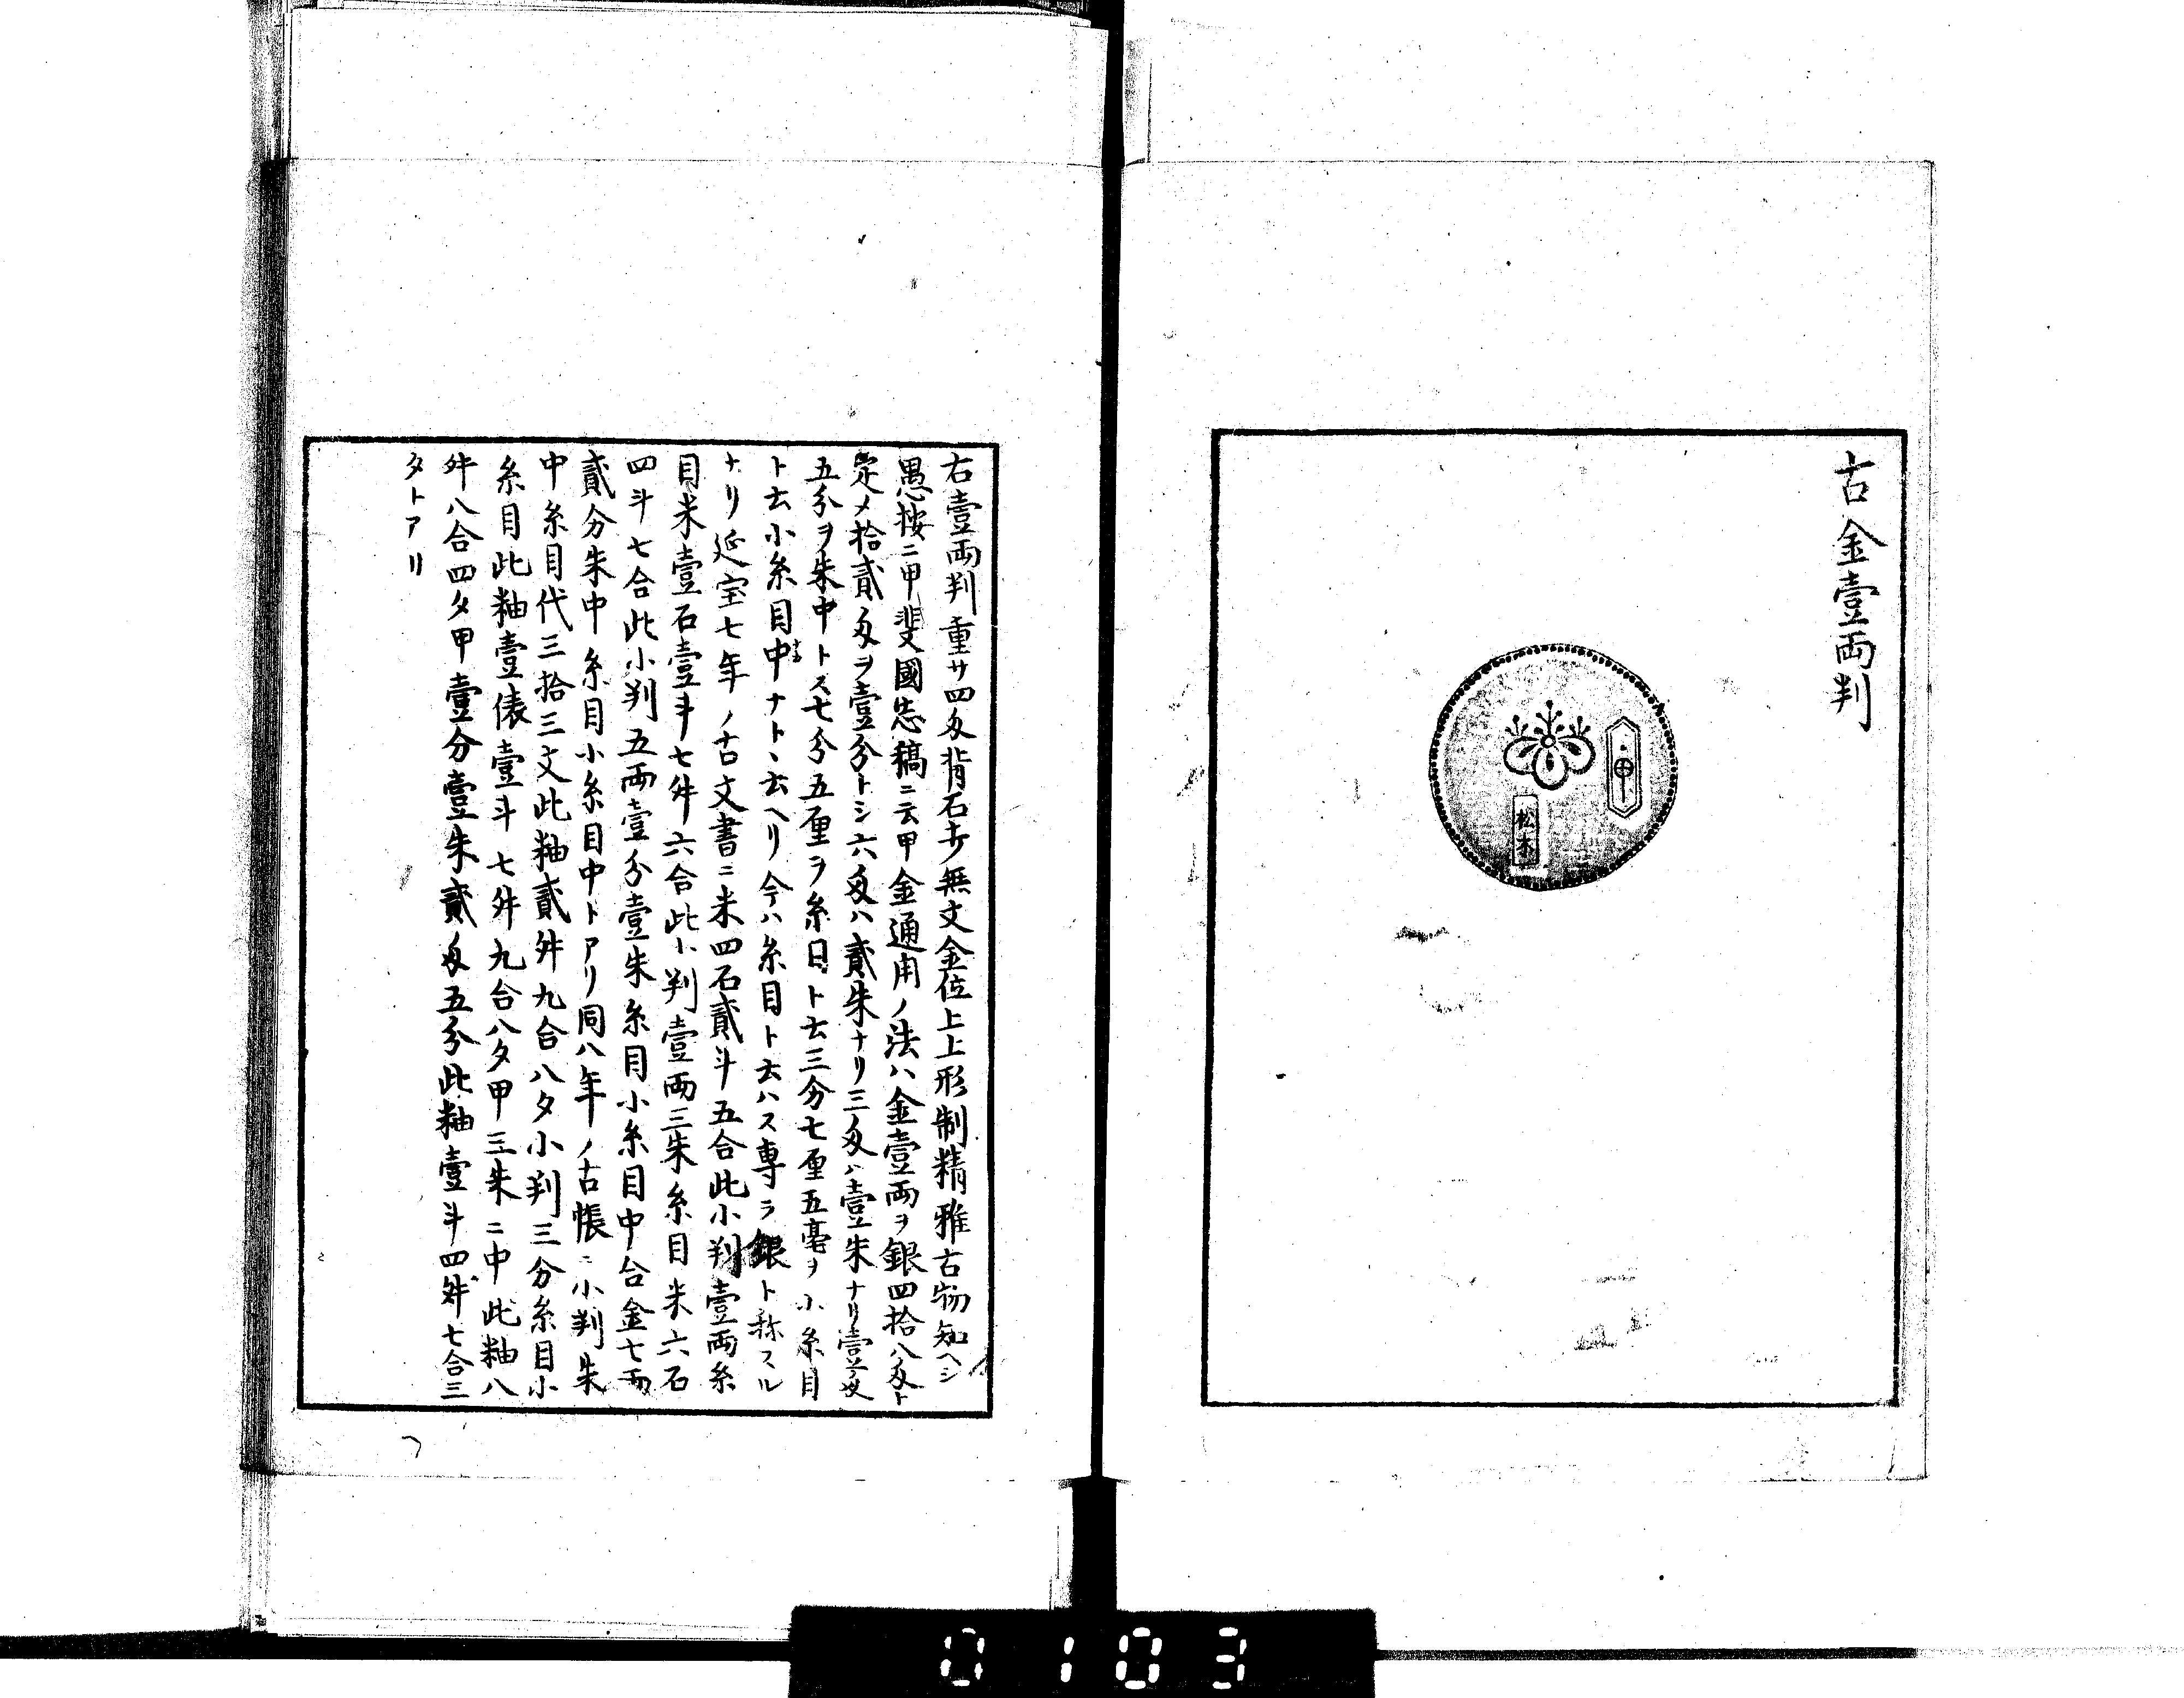 古金壹両判
甲
松木
右壹両判重サ四匁背石赤無文金位上上形制精雅古物知ヘシ
愚按ニ甲斐國志稿ニ云甲金通用ノ法ハ金壹両ヲ銀四拾八匁ト
定メ拾貳匁ヲ壹分トシ六匁ハ貳朱ナリ三匁ハ壹朱ナリ壹匁
五分ヲ朱中トス七分五厘ヲ糸目ト云三分七厘五毫ヲ小糸目
ト云小糸目中ナトヽ云ヘリ今ハ糸目ト云ハス専ラ銀ト称スル
ナリ延宝七年ノ古文書ニ米四石貳斗五合此小判壹両糸
目米壹石壹斗七舛六合此小判壹両三朱糸目米六石
四斗七合此小判五両壹分壹朱糸目小糸目中合金七両
貳分朱中糸目小糸目中トアリ同八年ノ古帳ニ小判朱
中糸目代三拾三文此籾貳舛九合八夕小判三分糸目小
糸目此籾壹俵壹斗七舛九合八夕甲三朱ニ中此籾八
舛八合四夕甲壹分壹朱貳匁五分此籾壹斗四舛七合三
夕トアリ
0103